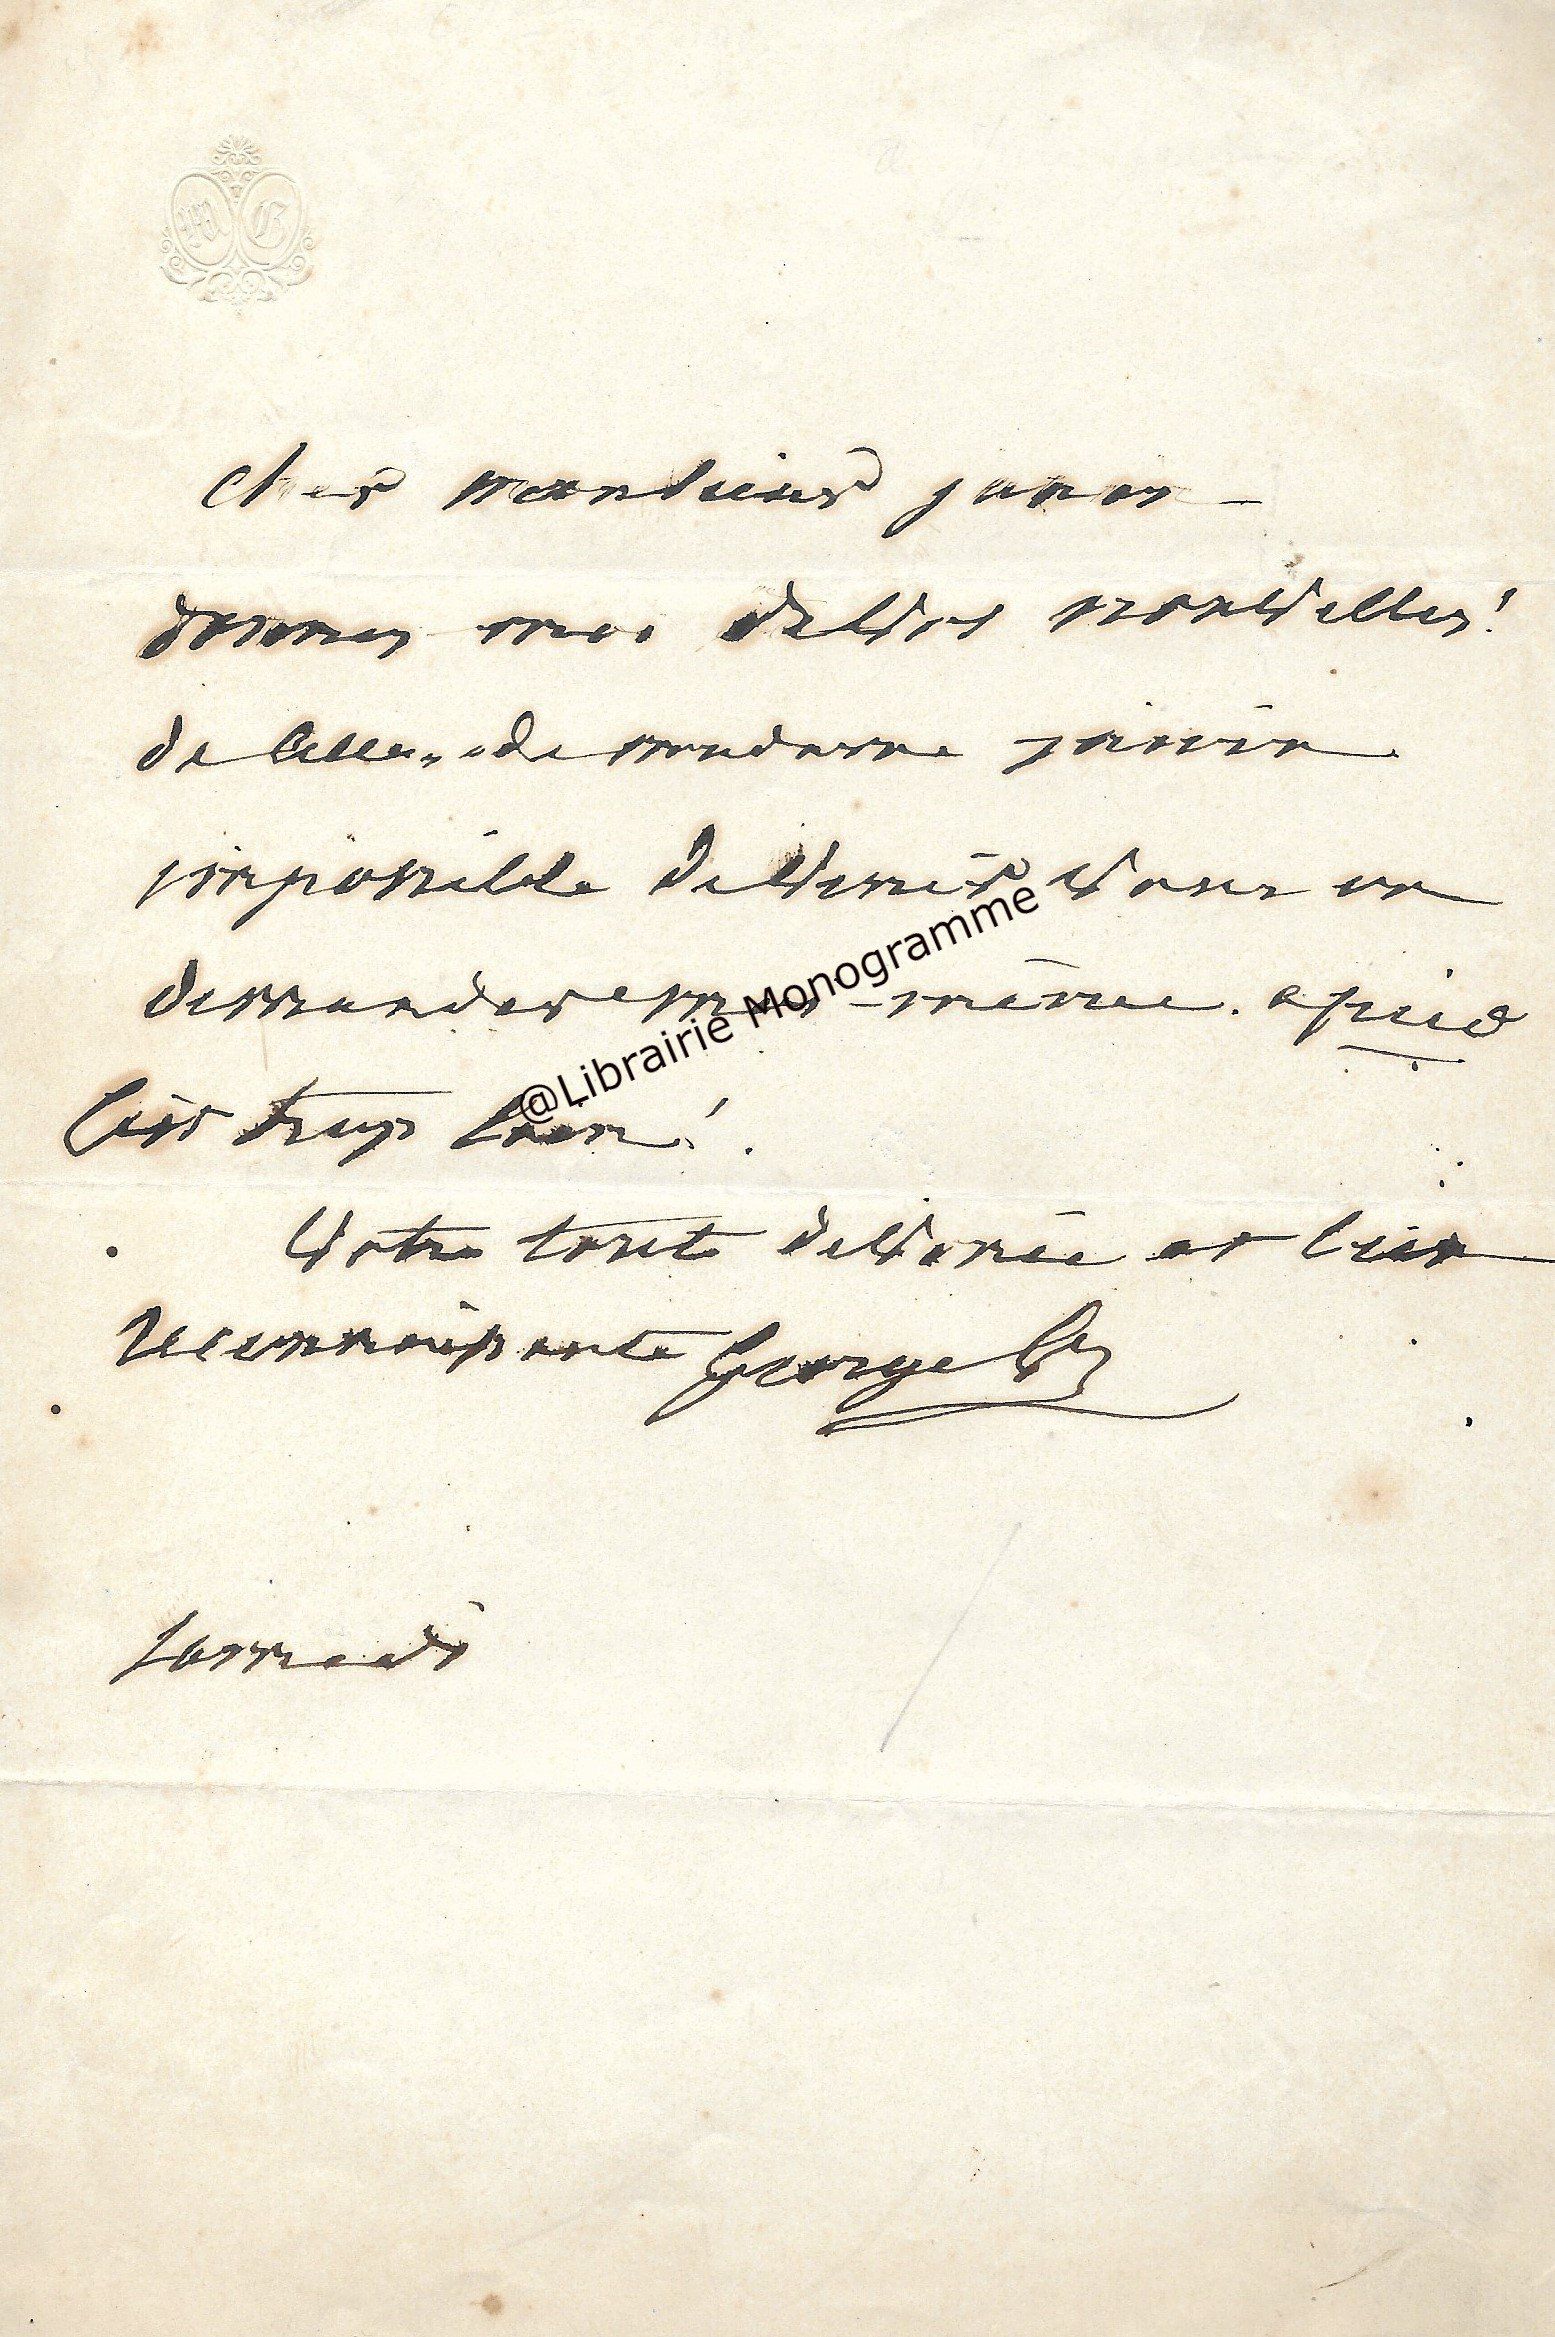 cher monsieur janin
donnez moi de vos nouvelles!
de celles de madame janin
impossible de venir vous en
demander moi-même. a pied
c'est trop loin!.
Votre toute dévouée et bien
reconnaissante George
samedi
@Librairie Monogramme